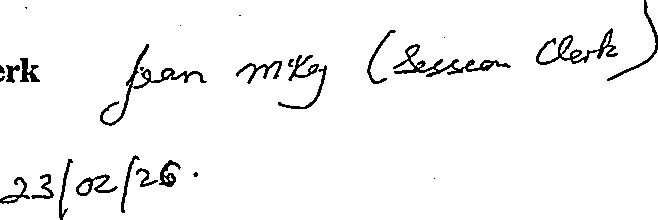 erk Jean McKay (Session Clerk)
23/02/26.